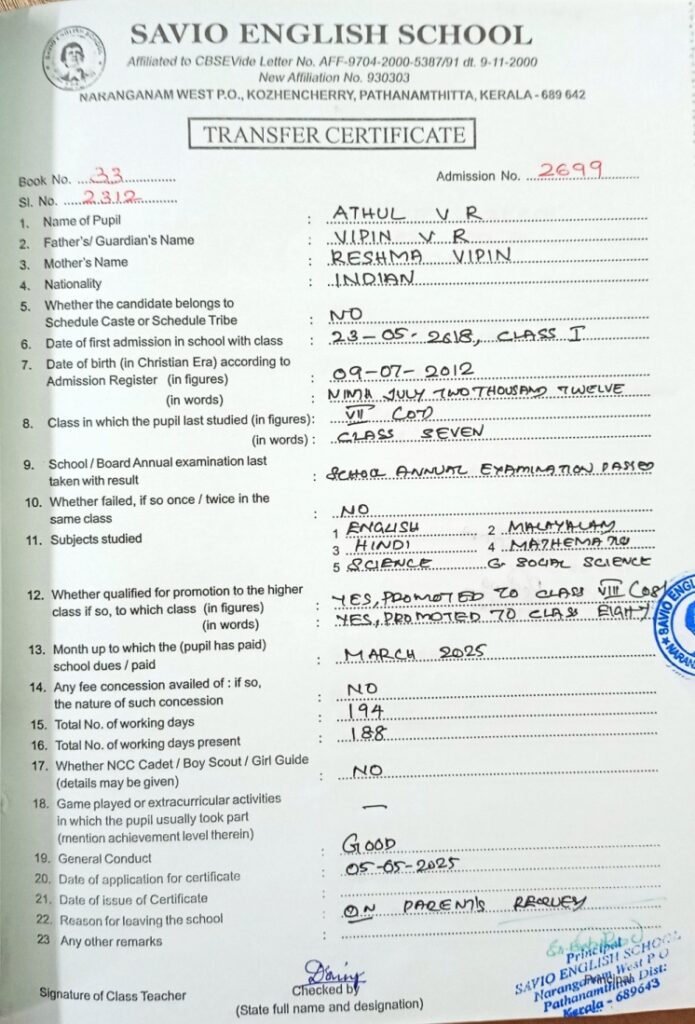 SAVIO ENGLISH SCHOOL
Affiliated to CBSEVide Letter No. AFF-9704-2000-5387/91 dt. 9-11-2000
New Affiliation No. 930303
NARANGANAM WEST P.O., KOZHENCHERRY, PATHANAMTHITTA, KERALA - 689 642
TRANSFER CERTIFICATE
Book No. 33 Admission No. 2699
Sl. No. 2312
1. Name of Pupil : ATHUL V R
2. Father's/ Guardian's Name : VIPIN V R
3. Mother's Name : RESHMA VIPIN
4. Nationality : INDIAN
5. Whether the candidate belongs to
Schedule Caste or Schedule Tribe : NO
6. Date of first admission in school with class : 23-05-2018, CLASS I
7. Date of birth (in Christian Era) according to
Admission Register (in figures) : 09-07-2012
(in words) : NINTH JULY TWO THOUSAND TWELVE
8. Class in which the pupil last studied (in figures): VII (07)
(in words) : CLASS SEVEN
9. School / Board Annual examination last
taken with result : SCHOOL ANNUAL EXAMINATION PASSED
10. Whether failed, if so once / twice in the
same class : NO
11. Subjects studied 1 ENGLISH 2 MALAYALAM
3 HINDI 4 MATHEMATICS
5 SCIENCE 6 SOCIAL SCIENCE
12. Whether qualified for promotion to the higher
class if so, to which class (in figures) : YES, PROMOTED TO CLASS VIII (08)
(in words) : YES, PROMOTED TO CLASS EIGHT
13. Month up to which the (pupil has paid)
school dues / paid : MARCH 2025
14. Any fee concession availed of : if so,
the nature of such concession : NO
15. Total No. of working days : 194
16. Total No. of working days present : 188
17. Whether NCC Cadet / Boy Scout / Girl Guide
(details may be given) : NO
18. Game played or extracurricular activities
in which the pupil usually took part : —
(mention achievement level therein)
19. General Conduct : GOOD
20. Date of application for certificate : 05-05-2025
21. Date of issue of Certificate :
22. Reason for leaving the school : ON PARENT'S REQUEST
23 Any other remarks :
Principal
SAVIO ENGLISH SCHOOL
Naranganam West P O
Pathanamthitta Dist:
Kerala - 689643
Principal
Signature of Class Teacher
Checked by
(State full name and designation)